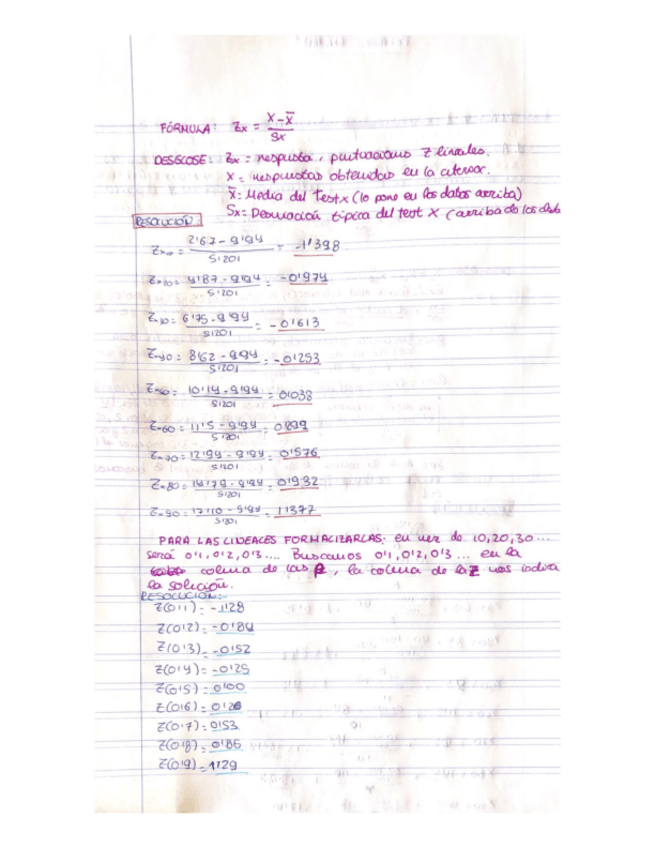 FÓRMULA: Zx = X - X̄ / Sx
DESGLOSE: Zx = respuesta, puntuaciones Z lineales.
X = respuestas obtenidas en la anterior.
X̄ = Media del Test x (lo pone en los datos arriba)
Sx = Desviación típica del test X (arriba de los datos
RESOLUCIÓN:
Zx10 = 2'67 - 9'94 / 5'201 = -1'398
Zx20 = 4'87 - 9'94 / 5'201 = -0'974
Zx30 = 6'75 - 9'94 / 5'201 = -0'613
Zx40 = 8'62 - 9'94 / 5'201 = -0'253
Zx50 = 10'14 - 9'94 / 5'201 = 0'038
Zx60 = 11'5 - 9'94 / 5'201 = 0'299
Zx70 = 12'94 - 9'94 / 5'201 = 0'576
Zx80 = 14'79 - 9'94 / 5'201 = 0'932
Zx90 = 17'10 - 9'94 / 5'201 = 1'377
PARA LAS LINEALES FORMALIZARLAS: en vez de 10, 20, 30 ...
será 0'1, 0'2, 0'3.... Buscamos 0'1, 0'2, 0'3 ... en la
colmna de las P, la colmna de la Z nos indica
la solución.
RESOLUCIÓN:
Z(0'1) = -1'28
Z(0'2) = -0'84
Z(0'3) = -0'52
Z(0'4) = -0'25
Z(0'5) = 0'00
Z(0'6) = 0'26
Z(0'7) = 0'53
Z(0'8) = 0'85
Z(0'9) = 1'29